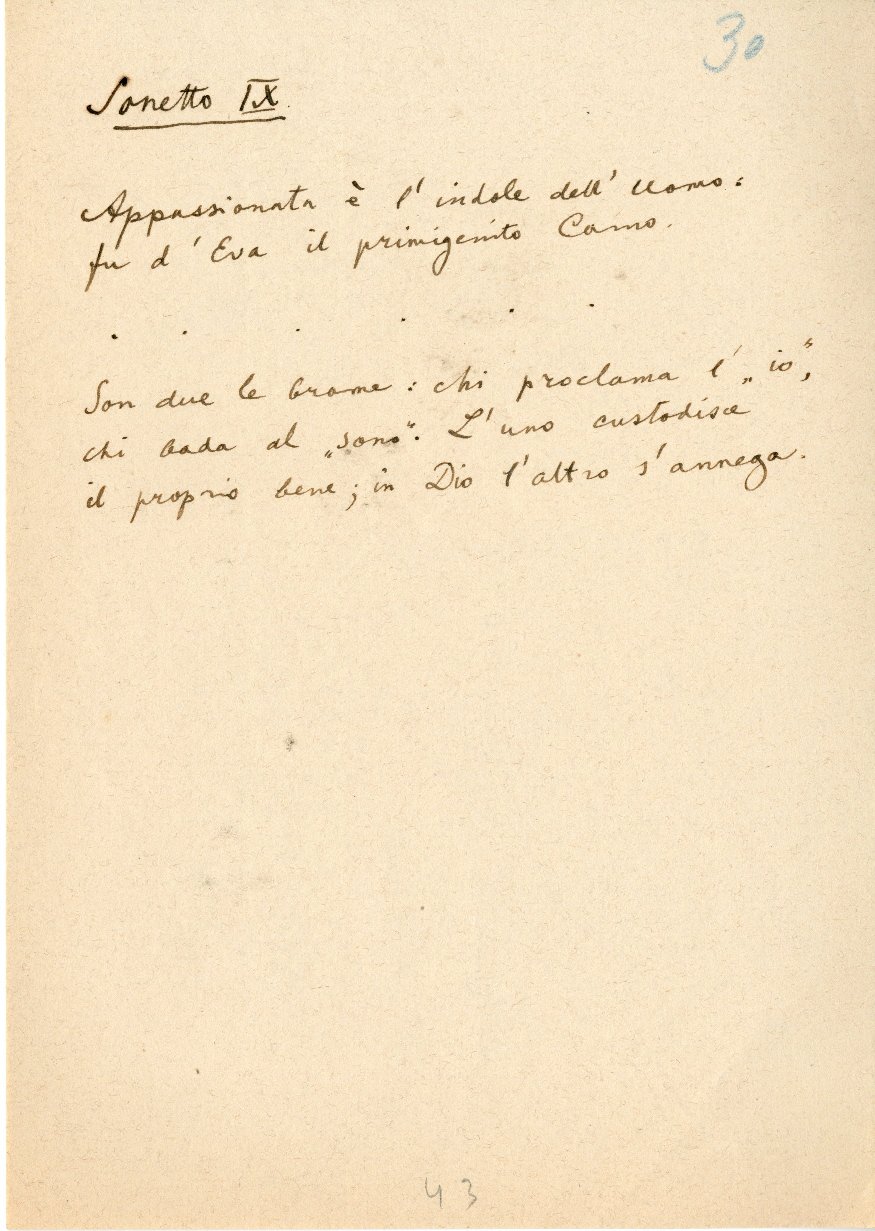 30
Sonetto IX.
Appassionata è l'indole dell'uomo:
fu d'Eva il primigenito Caino.
. . . . . .
Son due le brame: chi proclama l'„io",
chi bada al „sono". L'uno custodisce
il proprio bene; in Dio l'altro s'annega.
43